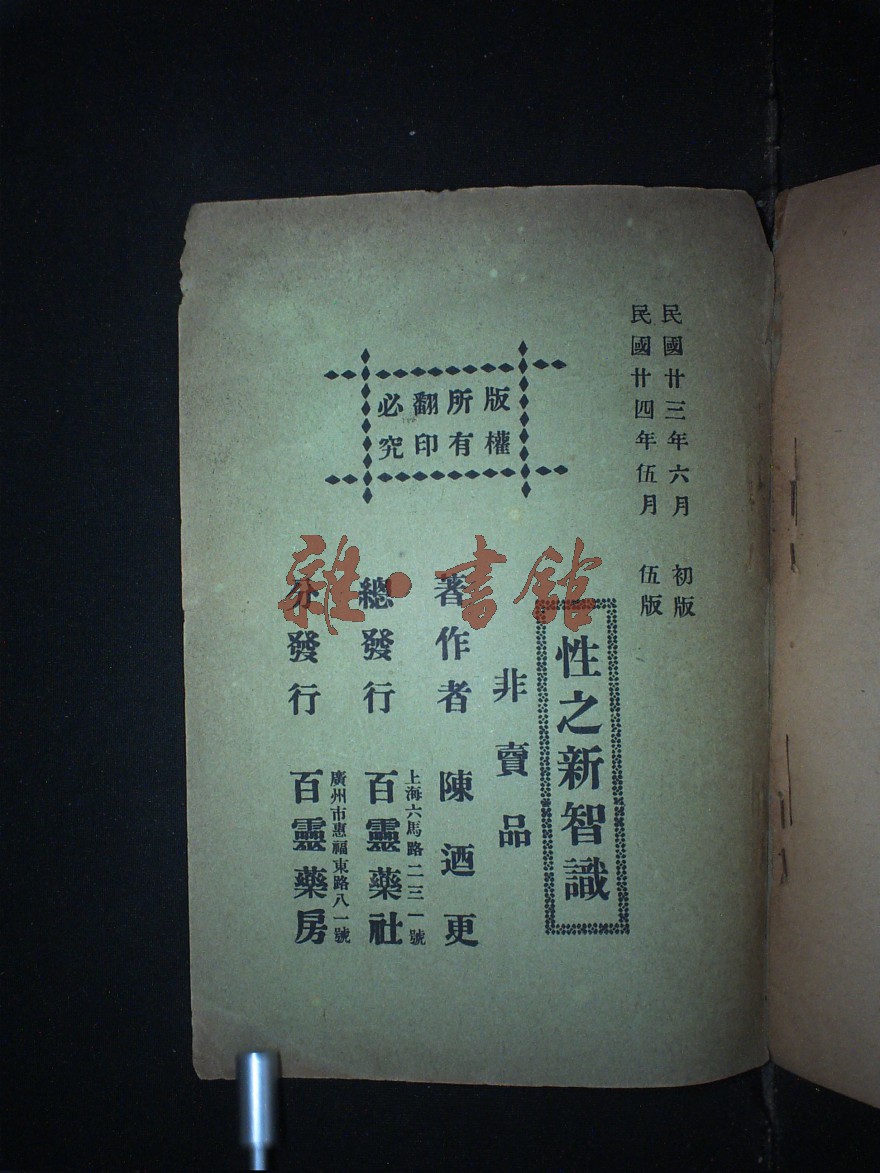 民國廿三年六月 初版
民國廿四年伍月 伍版
版權
所有
翻印
必究
性之新智識
非賣品
著作者 陳迺更
上海六馬路二三一號
總發行 百靈藥社
廣州市惠福東路八一號
分發行 百靈藥房
雜·書館